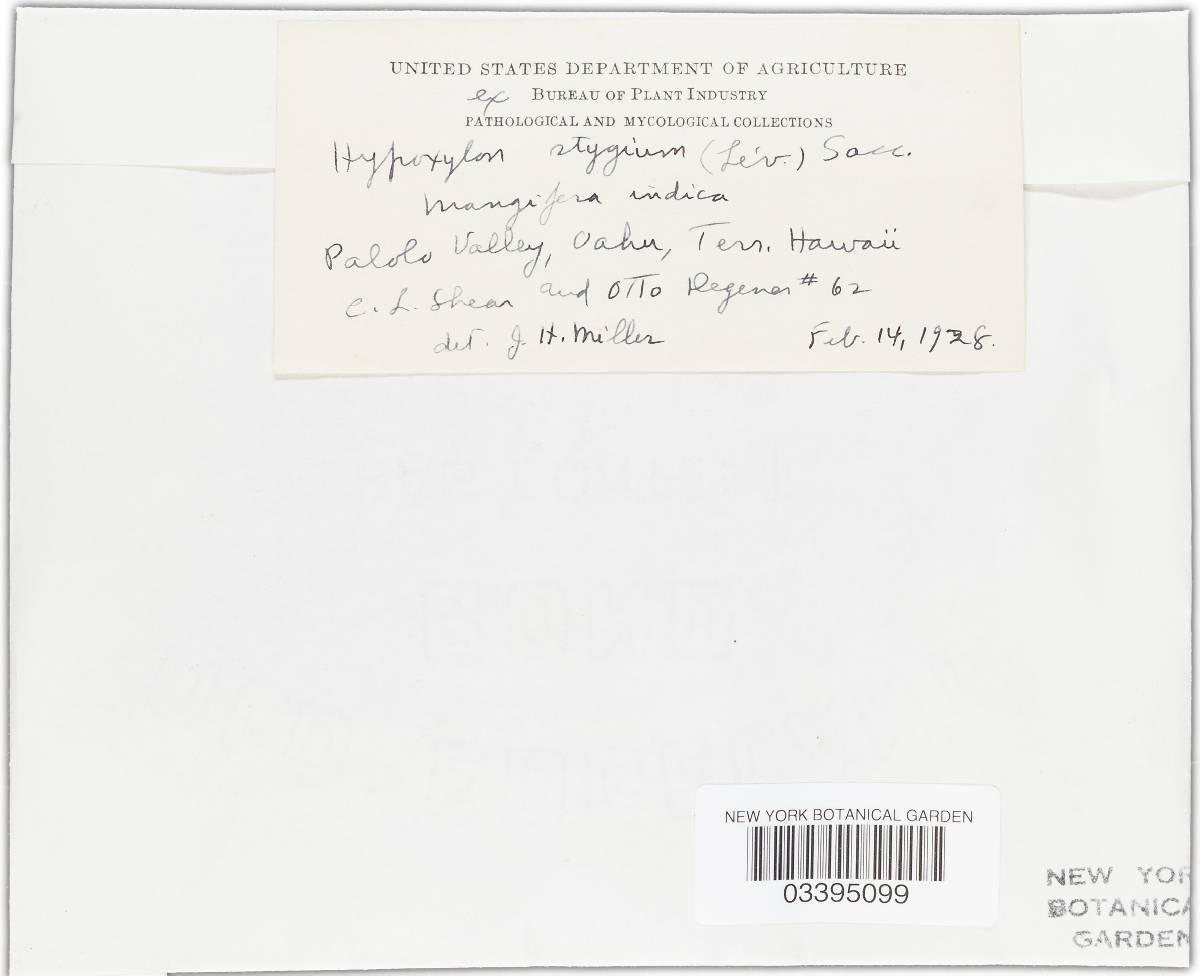 UNITED STATES DEPARTMENT OF AGRICULTURE
ex BUREAU OF PLANT INDUSTRY
PATHOLOGICAL AND MYCOLOGICAL COLLECTIONS
Hypoxylon stygium (Lév.) Sacc.
Mangifera indica
Palolo Valley, Oahu, Terr. Hawaii
C. L. Shear and Otto Degener # 62
det. J. H. Miller Feb. 14, 1928.
NEW YORK BOTANICAL GARDEN
03395099
NEW YOR
BOTANICA
GARDEN